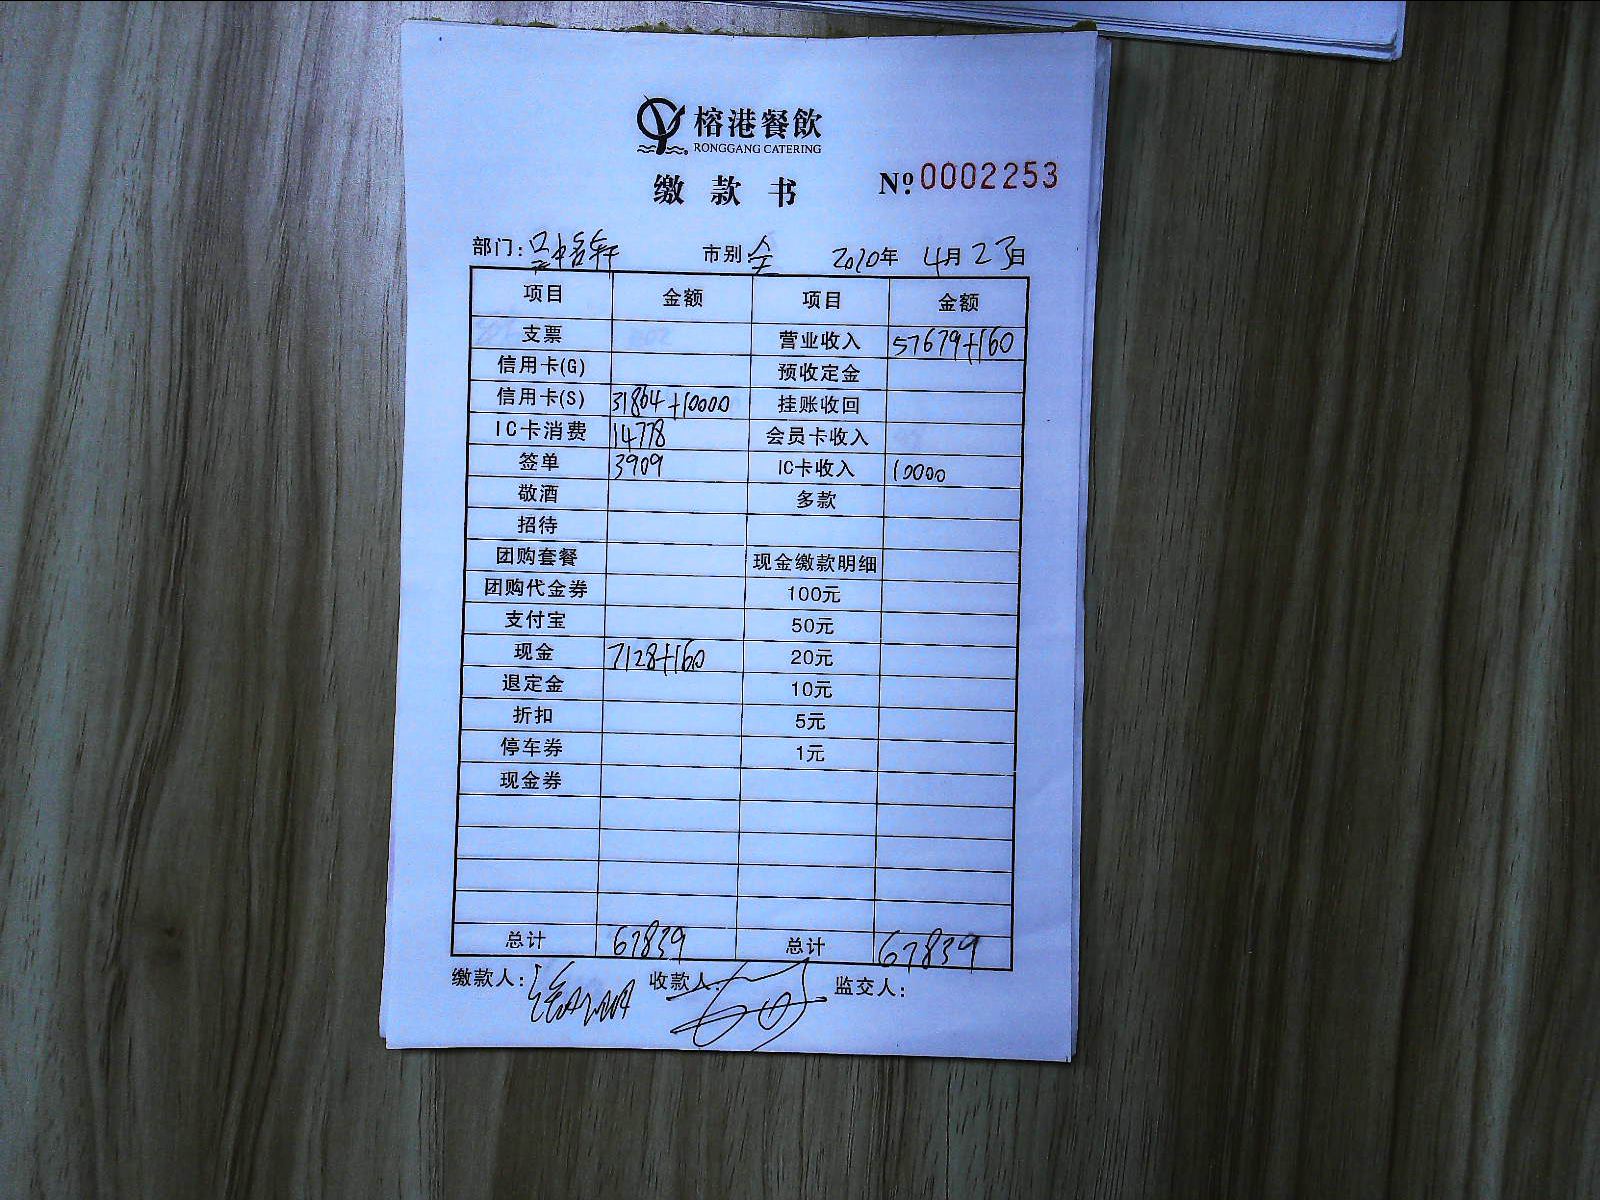 榕港餐飲
RONGGANG CATERING
缴款书
Nº 0002253
部门: 榕轩 市别: 全 2020年 4月 23日
项目 金额 项目 金额
支票 营业收入 57679+160
信用卡(G) 预收定金
信用卡(S) 31864+10000 挂账收回
IC卡消费 14778 会员卡收入
签单 3909 IC卡收入 10000
敬酒 多款
招待
团购套餐 现金缴款明细
团购代金券 100元
支付宝 50元
现金 7128+160 20元
退定金 10元
折扣 5元
停车券 1元
现金券
总计 67839 总计 67839
缴款人: 收款人: 监交人: